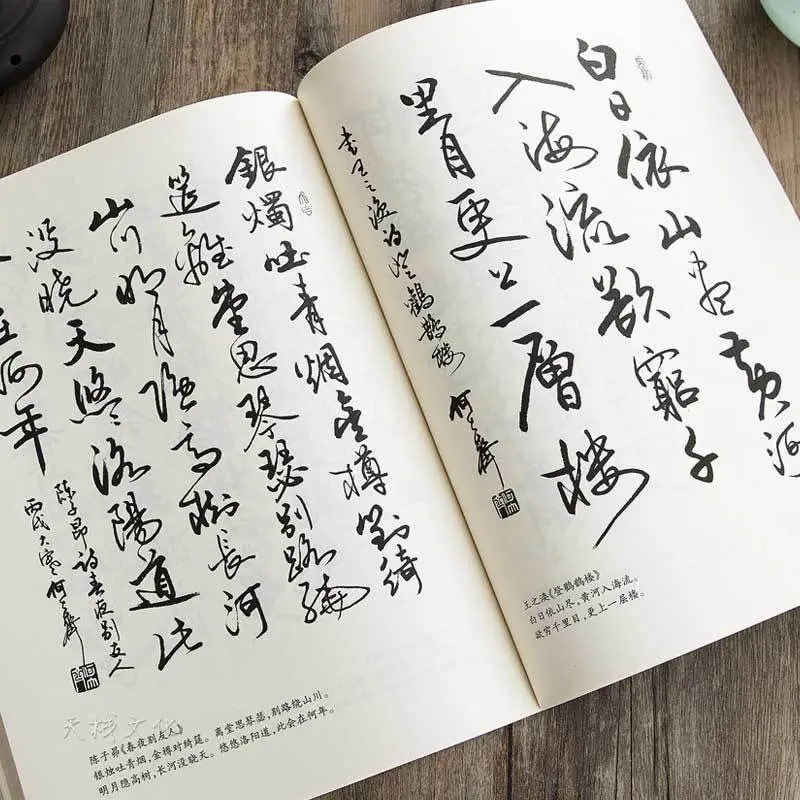 銀燭吐青烟金樽對綺
筵離堂思琴瑟别路繞
山川明月隱高樹長河
没晓天悠悠洛陽道此
在何年
陳子昂詩春夜别友人
丙戌大寒何
陈子昂《春夜别友人》
银烛吐青烟，金樽对绮筵。离堂思琴瑟，别路绕山川。
明月隐高树，长河没晓天。悠悠洛阳道，此会在何年。
文化
白日依山盡黄河
入海流欲窮千
里目更上一層楼
書王之渙詩登鸛鵲楼 何
王之涣《登鹳鹊楼》
白日依山尽，黄河入海流。
欲穷千里目，更上一层楼。